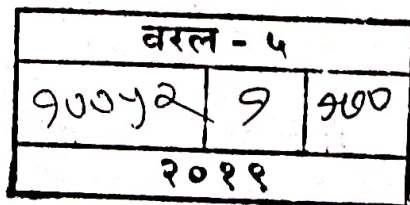 बरल - ५
१००५२ १ १७०
२०१९